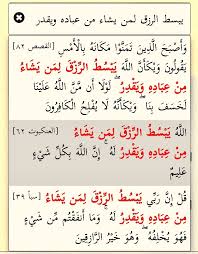 يبسط الرزق لمن يشاء من عباده ويقدر
وَأَصْبَحَ الَّذِينَ تَمَنَّوْا مَكَانَهُ بِالْأَمْسِ [القصص ٨٢]
يَقُولُونَ وَيْكَأَنَّ اللَّهَ يَبْسُطُ الرِّزْقَ لِمَن يَشَاءُ
مِنْ عِبَادِهِ وَيَقْدِرُ ۖ لَوْلَا أَن مَّنَّ اللَّهُ عَلَيْنَا
لَخَسَفَ بِنَا ۖ وَيْكَأَنَّهُ لَا يُفْلِحُ الْكَافِرُونَ
اللَّهُ يَبْسُطُ الرِّزْقَ لِمَن يَشَاءُ [العنكبوت ٦٢]
مِنْ عِبَادِهِ وَيَقْدِرُ لَهُ ۚ إِنَّ اللَّهَ بِكُلِّ شَيْءٍ
عَلِيمٌ
قُلْ إِنَّ رَبِّي يَبْسُطُ الرِّزْقَ لِمَن يَشَاءُ [سبأ ٣٩]
مِنْ عِبَادِهِ وَيَقْدِرُ لَهُ ۚ وَمَا أَنفَقْتُم مِّن شَيْءٍ
فَهُوَ يُخْلِفُهُ ۖ وَهُوَ خَيْرُ الرَّازِقِينَ